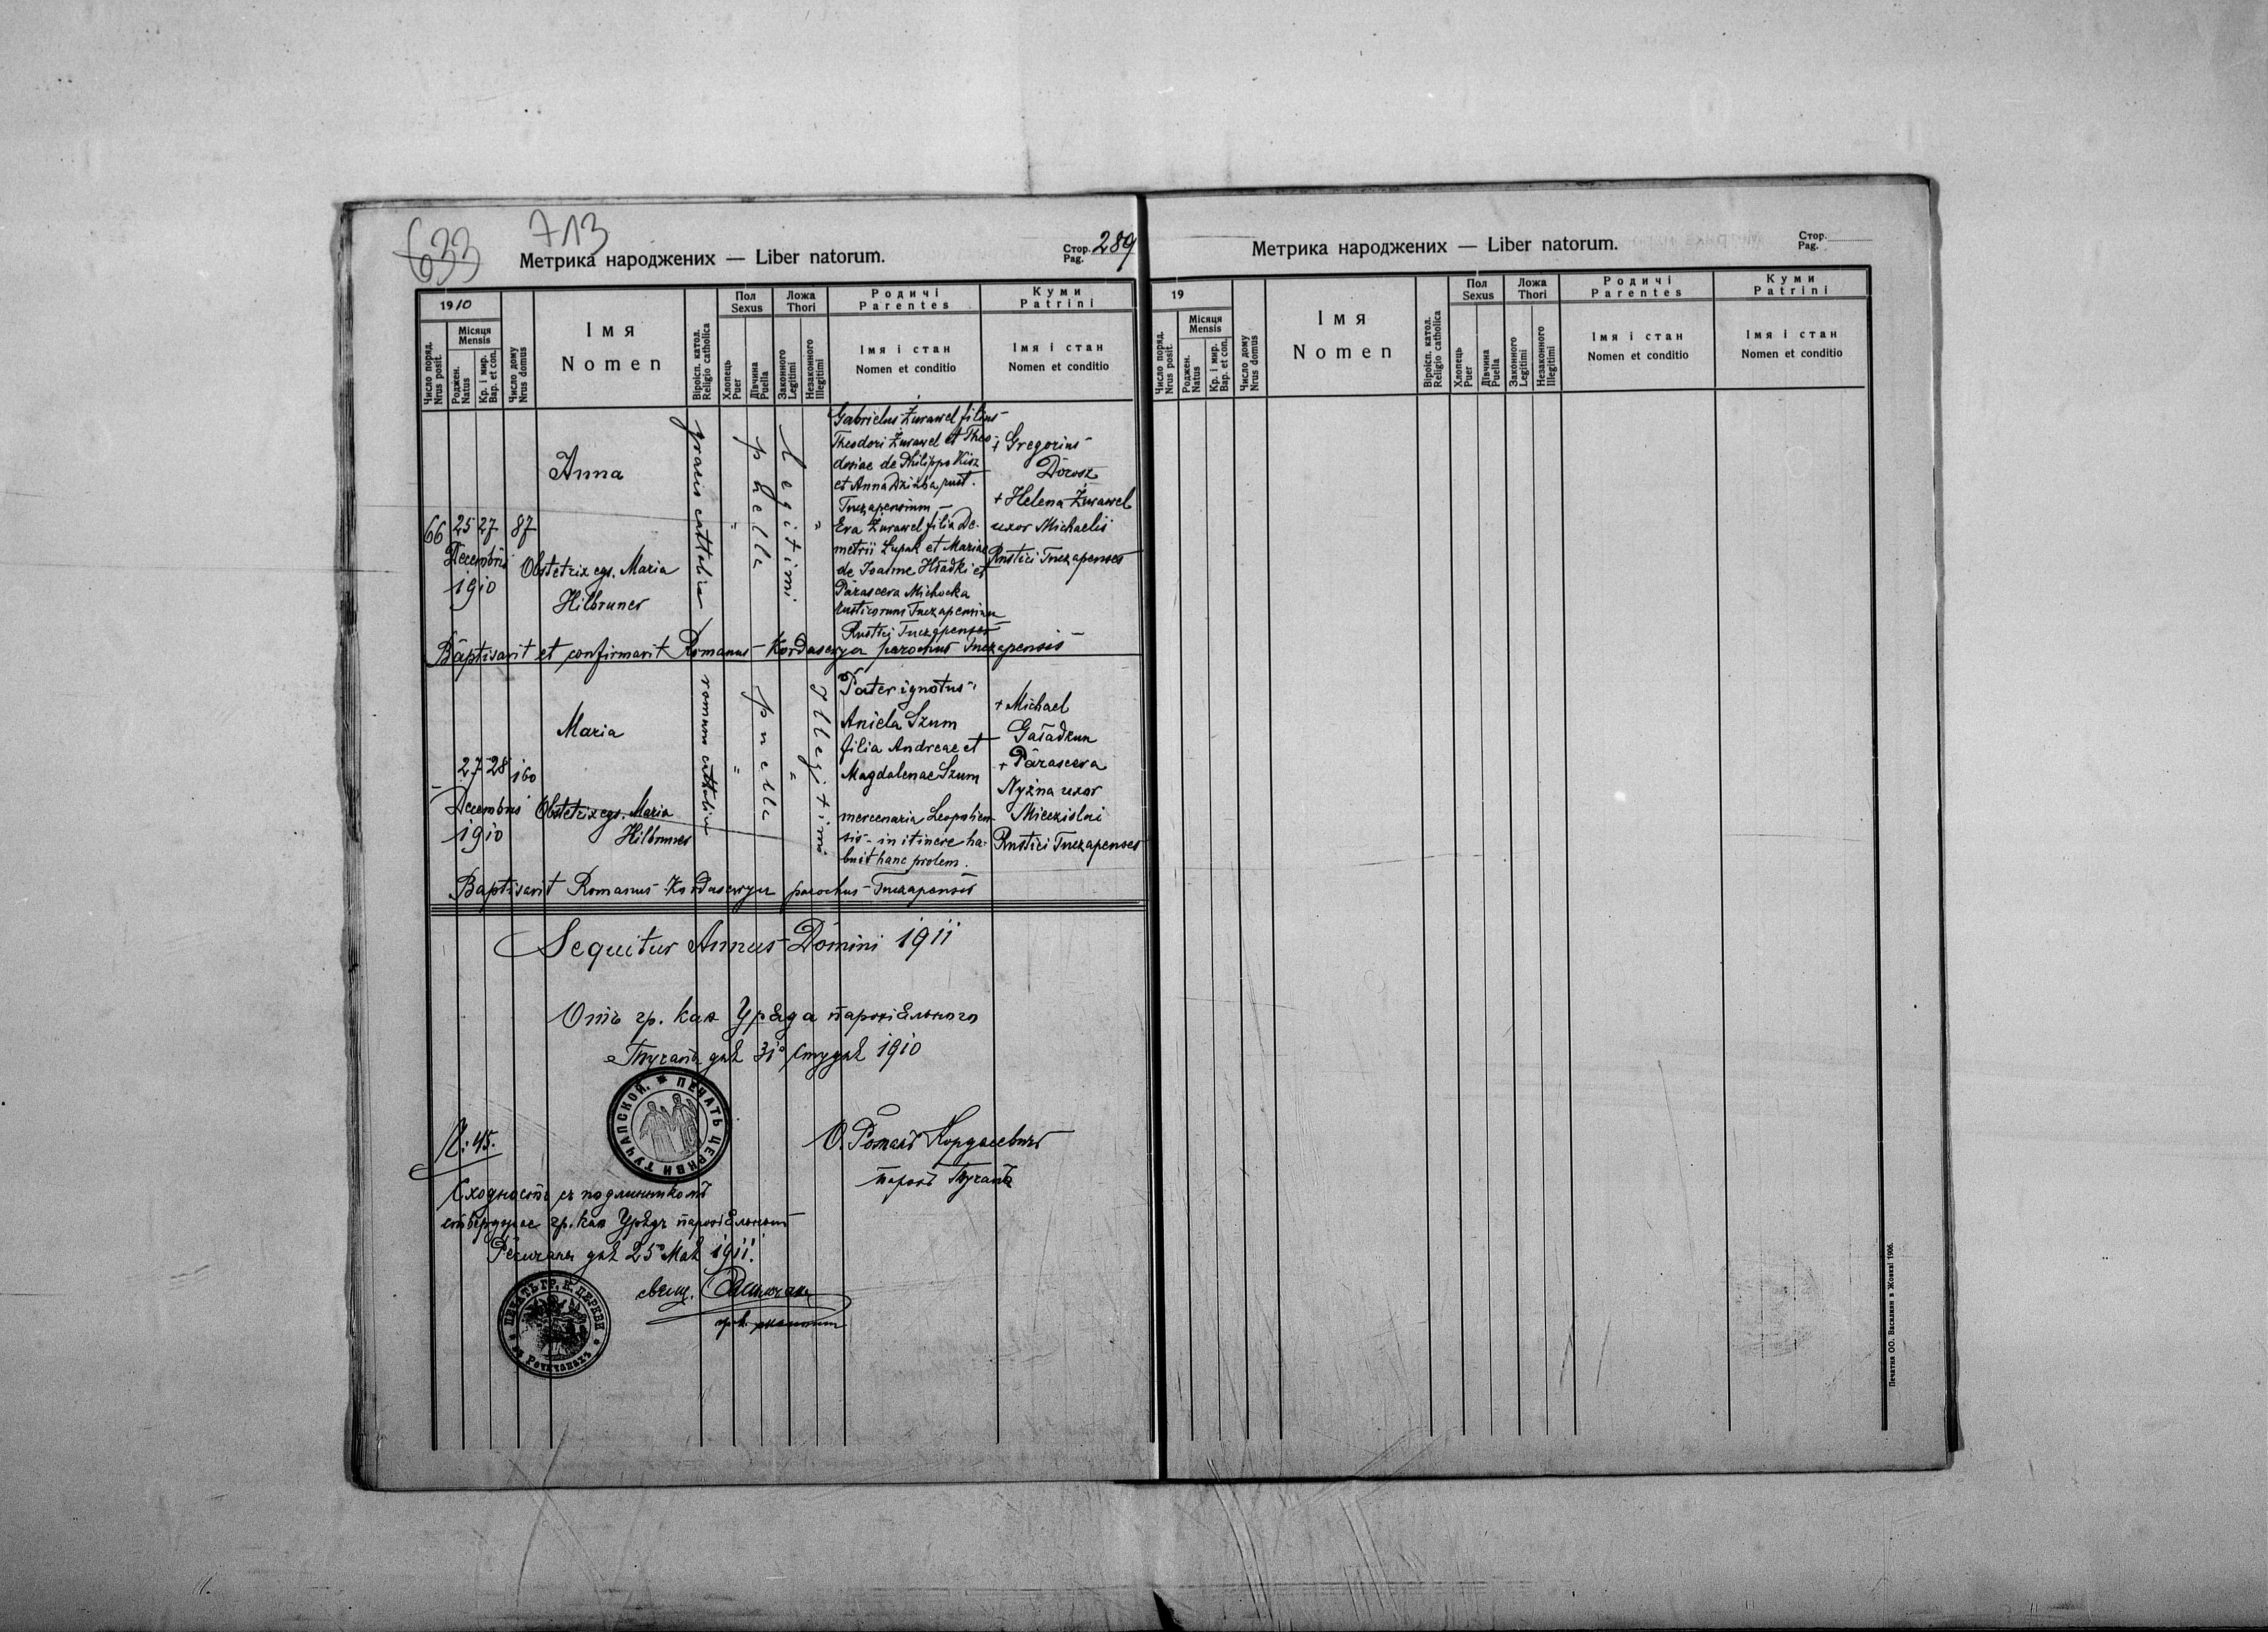 633
713
Метрика народжених — Liber natorum.
Стор. 289
Pag.
1910
Місяця
Mensis
Число поряд.
Nrus posit.
Роджен.
Natus
Кр. і мир.
Bap. et con.
Число дому
Nrus domus
Імя
Nomen
Віроісп. катол.
Religio catholica
Пол
Sexus
Хлопець
Puer
Дівчина
Puella
Ложа
Thori
Законного
Legitimi
Незаконного
Illegitimi
Родичі
Parentes
Імя і стан
Nomen et conditio
Куми
Patrini
Імя і стан
Nomen et conditio
66
25 27
Decembris
1910
87
Anna
Obstetrix egs. Maria
Hilbruner
graeco catholica
"
puella
Legitimi
"
Gabrielus Żurawel filius
Theodori Żurawel et Theo-
dosiae de Philippo Kisz
et Anna Dziuba rust.
Tuczapensium
Eva Żurawel filia De-
metrii Lupak et Mariae
de Joanne Hładki et
Parasceva Michocka
rusticorum Tuczapensium
Rustici Tuczapenses
+ Gregorius
Dorosz
+ Helena Żurawel
uxor Michaelis
Rustici Tuczapenses
Baptisavit et confirmavit Romanus Kordasewycz parochus Tuczapensis
27 28
Decembris
1910
160
Maria
Obstetrix egs. Maria
Hilbruner
romano catholica
"
puella
"
Illegitimi
Pater ignotus
Aniela Szum
filia Andreae et
Magdalenae Szum
mercenaria Leopolien-
sis - in itinere ha-
buit hanc prolem.
+ Michael
Gaładzun
+ Parasceva
Nyżna uxor
Mieczislai
Rustici Tuczapenses
Baptisavit Romanus Kordasewycz parochus Tuczapensis
Sequitur Annus Domini 1911
Отъ гр. кат Уряда парохіяльного
Тучапы дня 31° Студня 1910
ПЕЧАТЬ ЦЕРКВИ ТУЧАПСКОЙ.
О. Романъ Кордасевичъ
парохъ Тучапъ
Ч: 45.
Сходность съ подлинникомъ
стверджае гр. кат Урядъ парохіяльный
Речичаны дня 25 Мая 1911.
ПЕЧАТЬ ГР. К. ЦЕРКВИ
въ Речичанахъ
свящ.
Метрика народжених — Liber natorum.
Стор.
Pag.
19
Місяця
Mensis
Число поряд.
Nrus posit.
Роджен.
Natus
Кр. і мир.
Bap. et con.
Число дому
Nrus domus
Імя
Nomen
Віроісп. катол.
Religio catholica
Пол
Sexus
Хлопець
Puer
Дівчина
Puella
Ложа
Thori
Законного
Legitimi
Незаконного
Illegitimi
Родичі
Parentes
Імя і стан
Nomen et conditio
Куми
Patrini
Імя і стан
Nomen et conditio
Печатня ОО. Василиян в Жовкві 1906.